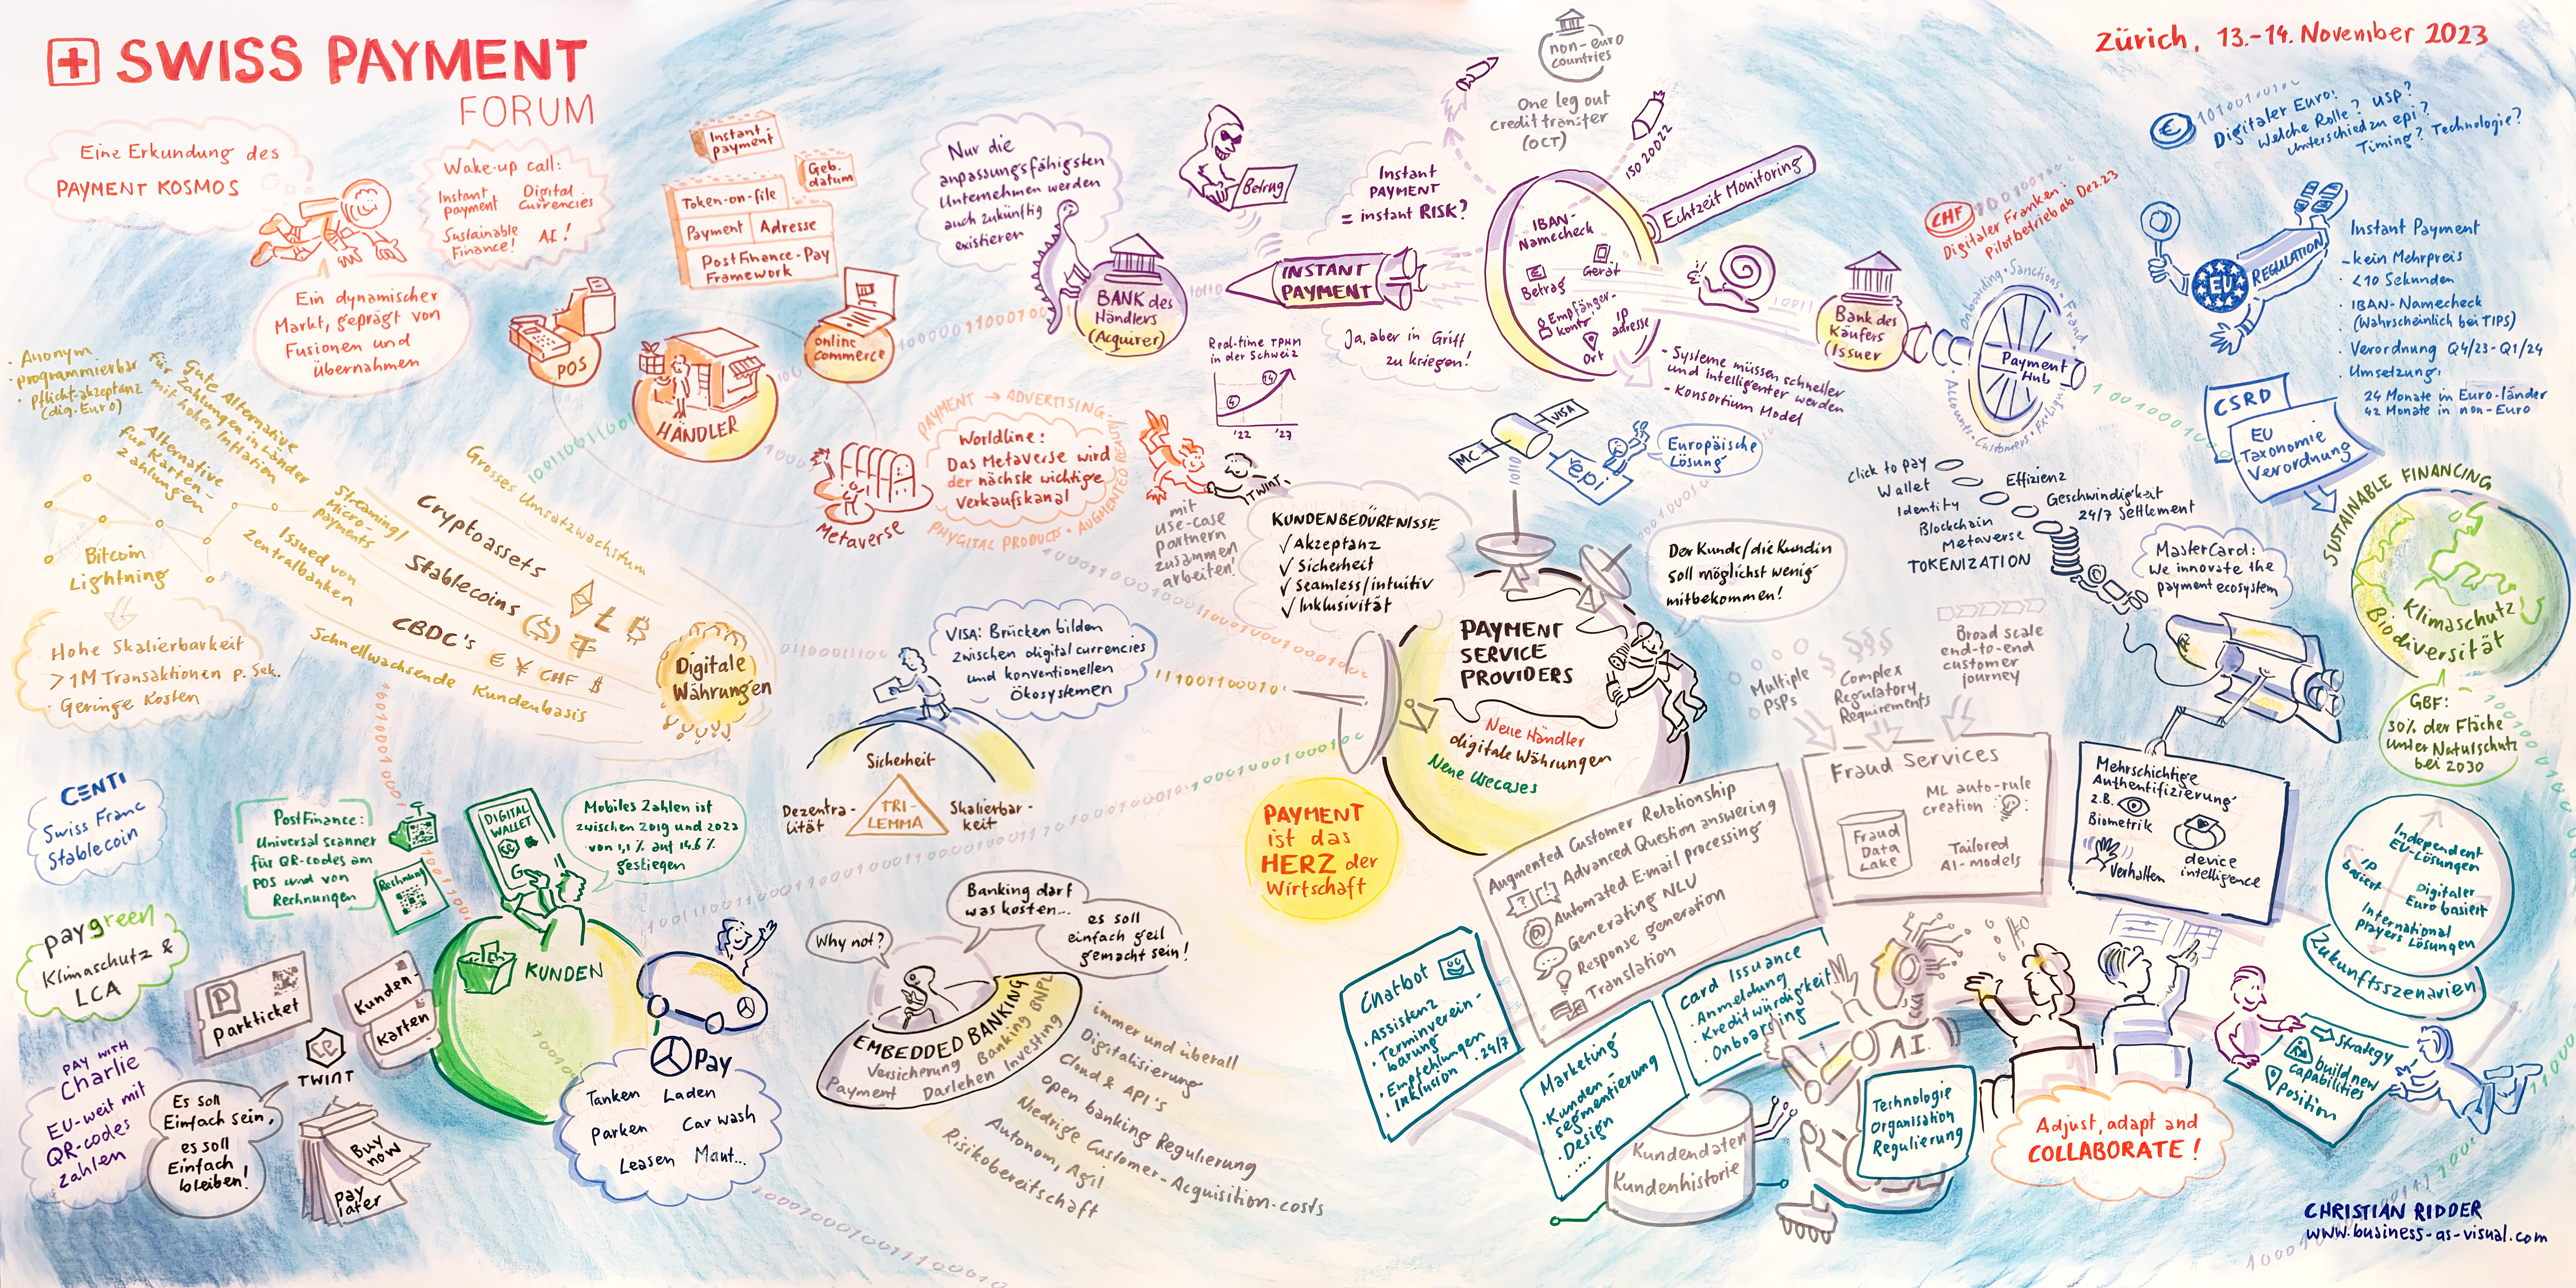 SWISS PAYMENT
FORUM
Zürich, 13.-14. November 2023
Eine Erkundung des
PAYMENT KOSMOS
Wake-up call:
Instant payment
Digital Currencies
Sustainable Finance!
AI!
Ein dynamischer
Markt, geprägt von
Fusionen und
übernahmen
Instant payment
Geb. datum
Token-on-file
Payment
Adresse
PostFinance-Pay
Framework
POS
HÄNDLER
online commerce
Nur die
anpassungsfähigsten
Unternehmen werden
auch zukünftig
existieren
BANK des
Händlers
(Acquirer)
Betrug
Instant
PAYMENT
= instant RISK?
INSTANT
PAYMENT
Ja, aber in Griff
zu kriegen!
Real-time TPHM
in der Schweiz
4
14
'22
'27
non-euro
countries
One leg out
credit transfer
(OCT)
ISO 20022
Echtzeit Monitoring
IBAN-
Namecheck
Betrag
Gerät
Empfänger-
konto
IP
adresse
Ort
- Systeme müssen schneller
und intelligenter werden
- Konsortium Model
Bank des
Käufers
(Issuer
Onboarding · Sanctions · Fraud ·
Payment
Hub
CHF
Digitaler Franken:
Pilotbetrieb ab Dez.23
€
Digitaler Euro:
Welche Rolle? USP?
Unterschied zu epi?
Timing? Technologie?
EU
REGULATION
Instant Payment
- kein Mehrpreis
· <10 Sekunden
· IBAN-Namecheck
(Wahrscheinlich bei TIPS)
· Verordnung Q4/23-Q1/24
· Umsetzung:
24 Monate in Euro-länder
42 Monate in non-Euro
CSRD
EU
Taxonomie
Verordnung
SUSTAINABLE FINANCING
Klimaschutz
Biodiversität
GBF:
30% der Fläche
unter Naturschutz
bei 2030
· Anonym
· programmierbar
· Pflicht-akzeptanz
(dig. Euro)
Gute Alternative
für Zahlungen in Länder
mit hoher Inflation
Alternative
für Karten-
zahlungen
Bitcoin
Lightning
Hohe Skalierbarkeit
>1M Transaktionen p. Sek.
· Geringe Kosten
Grosses Umsatzwachstum
Streaming/
Micro-
payments
Cryptoassets
Issued von
Zentralbanken
Stablecoins ($)
CBDC's € ¥ CHF $
Schnellwachsende Kundenbasis
Digitale
Währungen
Metaverse
PAYMENT → ADVERTISING
Worldline:
Das Metaverse wird
der nächste wichtige
Verkaufskanal
PHYGITAL PRODUCTS · AUGMENTED REALITY
TWINT
mit
use-case
partnern
zusammen
arbeiten!
MC
VISA
epi
Europäische
Lösung
KUNDENBEDÜRFNISSE
✓ Akzeptanz
✓ Sicherheit
✓ Seamless/intuitiv
✓ Inklusivität
Der Kunde/die Kundin
soll möglichst wenig
mitbekommen!
PAYMENT
SERVICE
PROVIDERS
Neue Händler
digitale Währungen
Neue Usecases
PAYMENT
ist das
HERZ der
Wirtschaft
VISA: Brücken bilden
zwischen digital currencies
und konventionellen
Ökosystemen
Sicherheit
Dezentra-
lität
TRI-
LEMMA
Skalierbar-
keit
Click to pay
Wallet
Identity
Blockchain
Metaverse
TOKENIZATION
Effizienz
Geschwindigkeit
24/7 Settlement
MasterCard:
We innovate the
payment ecosystem
Multiple
PSPs
Complex
Regulatory
Requirements
Broad scale
end-to-end
customer
journey
Fraud Services
Fraud
Data
Lake
ML auto-rule
creation
Tailored
AI-models
Mehrschichtige
Authentifizierung
z.B.
Biometrik
Verhalten
device
intelligence
Independent
EU-Lösungen
IP
basiert
Digitaler
Euro basiert
International
players Lösungen
Zukunftsszenarien
CENTI
Swiss Franc
Stablecoin
PostFinance:
Universal scanner
für QR-codes am
POS und von
Rechnungen
Rechnung
DIGITAL
WALLET
Mobiles Zahlen ist
zwischen 2019 und 2022
von 1,1 % auf 14.6 %
gestiegen
KUNDEN
paygreen
Klimaschutz &
LCA
P
Parkticket
Kunden-
Karten
TWINT
PAY WITH
Charlie
EU-weit mit
QR-codes
zahlen
Es soll
Einfach sein,
es soll
Einfach
bleiben!
Buy
now
pay
later
Pay
Tanken Laden
Parken Car wash
Leasen Maut...
Why not?
Banking darf
was kosten...
es soll
einfach geil
gemacht sein!
EMBEDDED BANKING
Versicherung Banking BNPL
Payment Darlehen Investing
immer und überall
Digitalisierung
Cloud & API's
Open banking Regulierung
Niedrige Customer-Acquisition-costs
Autonom, Agil
Risikobereitschaft
Augmented Customer Relationship
Advanced Question answering
Automated E-mail processing
Generating NLU
Response generation
Translation
Chatbot
· Assistenz
· Terminverein-
barung
· Empfehlungen
· Inklusion · 24/7
Marketing
· Kunden-
segmentierung
· Design
.....
Card Issuance
· Anmeldung
· Kreditwürdigkeit
· Onboarding
Kundendaten
Kundenhistorie
A.I.
Technologie
Organisation
Regulierung
Adjust, adapt and
COLLABORATE!
Strategy
build new
capabilities
Position
CHRISTIAN RIDDER
www.business-as-visual.com